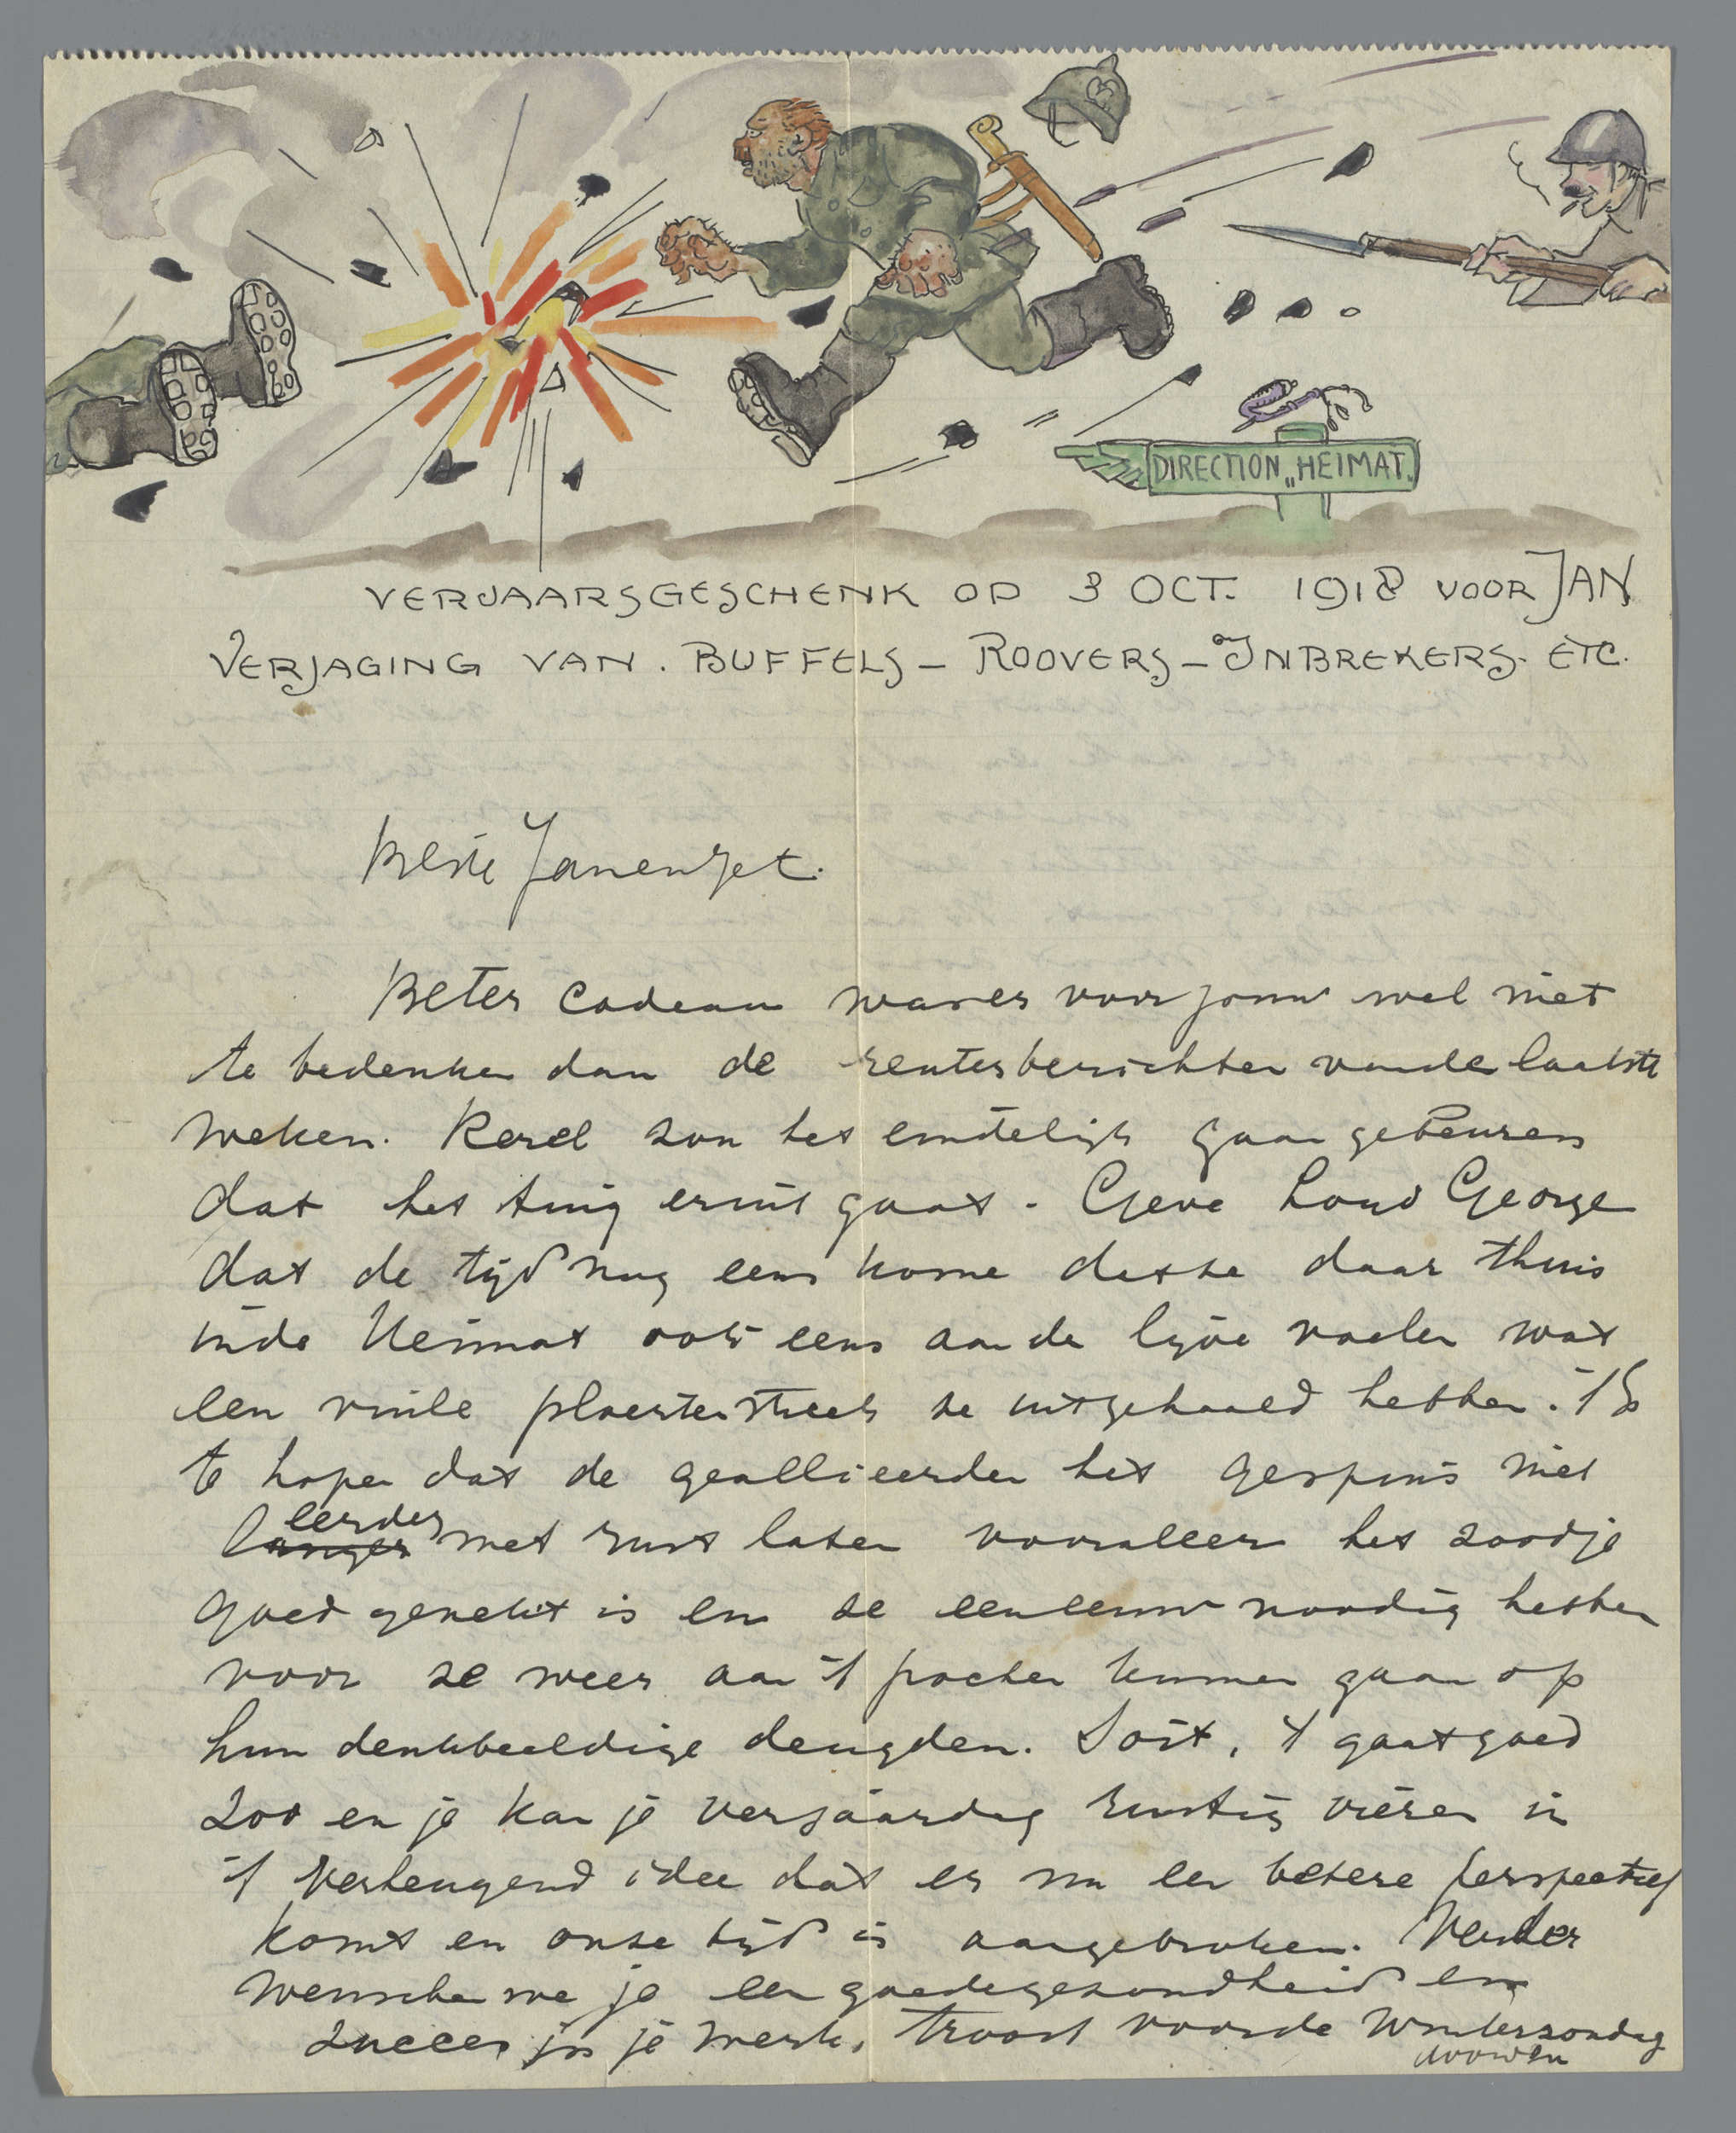 DIRECTION „HEIMAT."
VERJAARSGESCHENK OP 3 OCT. 1918 VOOR JAN
VERJAGING VAN. BUFFELS – ROOVERS – INBREKERS. ETC.
Beste Jan en Jet.
Beter cadeau was er voor jouw wel niet
te bedenken dan de reuterberichten van de laatste
weken. Kerel zou het eindelijk gaan gebeuren
dat het tuig eruit gaat. Geve Loyd George
dat de tijd nog eens kome dat ze daar thuis
in de Heimat ook eens aan de lijve voelen wat
een vuile ploertenstreek ze uitgehaald hebben. 't Is
te hopen dat de geallieerden het gespuis niet
langer eerder met rust laten vooraleer het zoodje
goed genekt is en ze een eeuw noodig hebben
voor ze weer aan 't pochen kunnen gaan op
hun denkbeeldige deugden. Soit, 't gaat goed
zoo en je kan je verjaardag rustig vieren in
't verheugend idee dat er nu een betere perspectief
komt en onze tijd is aangebroken. Verder
wenschen we je een goede gezondheid en
succes in je werk, troost voor de